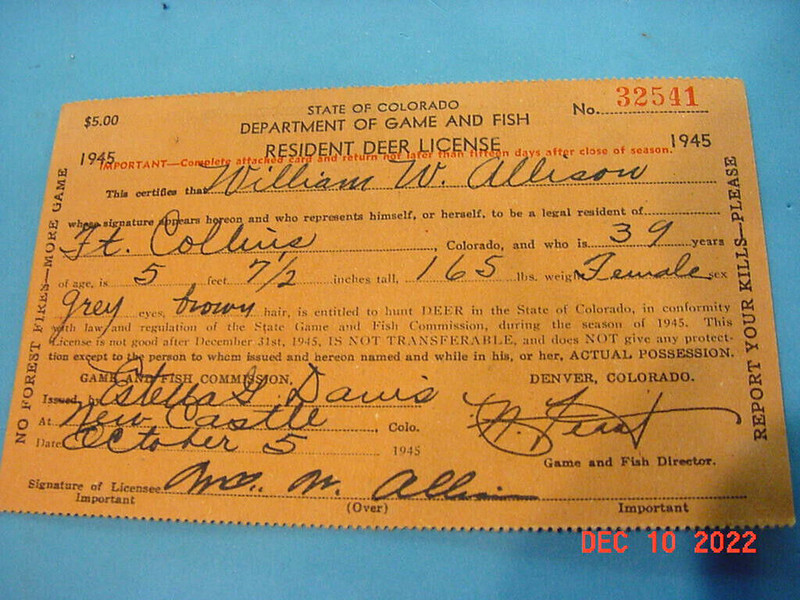 $5.00 STATE OF COLORADO No. 32541
DEPARTMENT OF GAME AND FISH
1945 RESIDENT DEER LICENSE 1945
IMPORTANT—Complete attached card and return not later than fifteen days after close of season.
This certifies that William W. Allison
whose signature appears hereon and who represents himself, or herself, to be a legal resident of
Ft. Collins, Colorado, and who is 39 years
of age, is 5 feet 7 1/2 inches tall, 165 lbs. weig Female sex
grey eyes, brown hair, is entitled to hunt DEER in the State of Colorado, in conformity
with law and regulation of the State Game and Fish Commission, during the season of 1945. This
License is not good after December 31st, 1945, IS NOT TRANSFERABLE, and does NOT give any protec-
tion except to the person to whom issued and hereon named and while in his, or her, ACTUAL POSSESSION.
GAME AND FISH COMMISSION, DENVER, COLORADO.
Issued by Estella G. Davis
At New Castle, Colo.
Date October 5 1945
Game and Fish Director.
Signature of Licensee Wm. W. Allison
Important (Over) Important
NO FOREST FIRES—MORE GAME
REPORT YOUR KILLS—PLEASE
DEC 10 2022